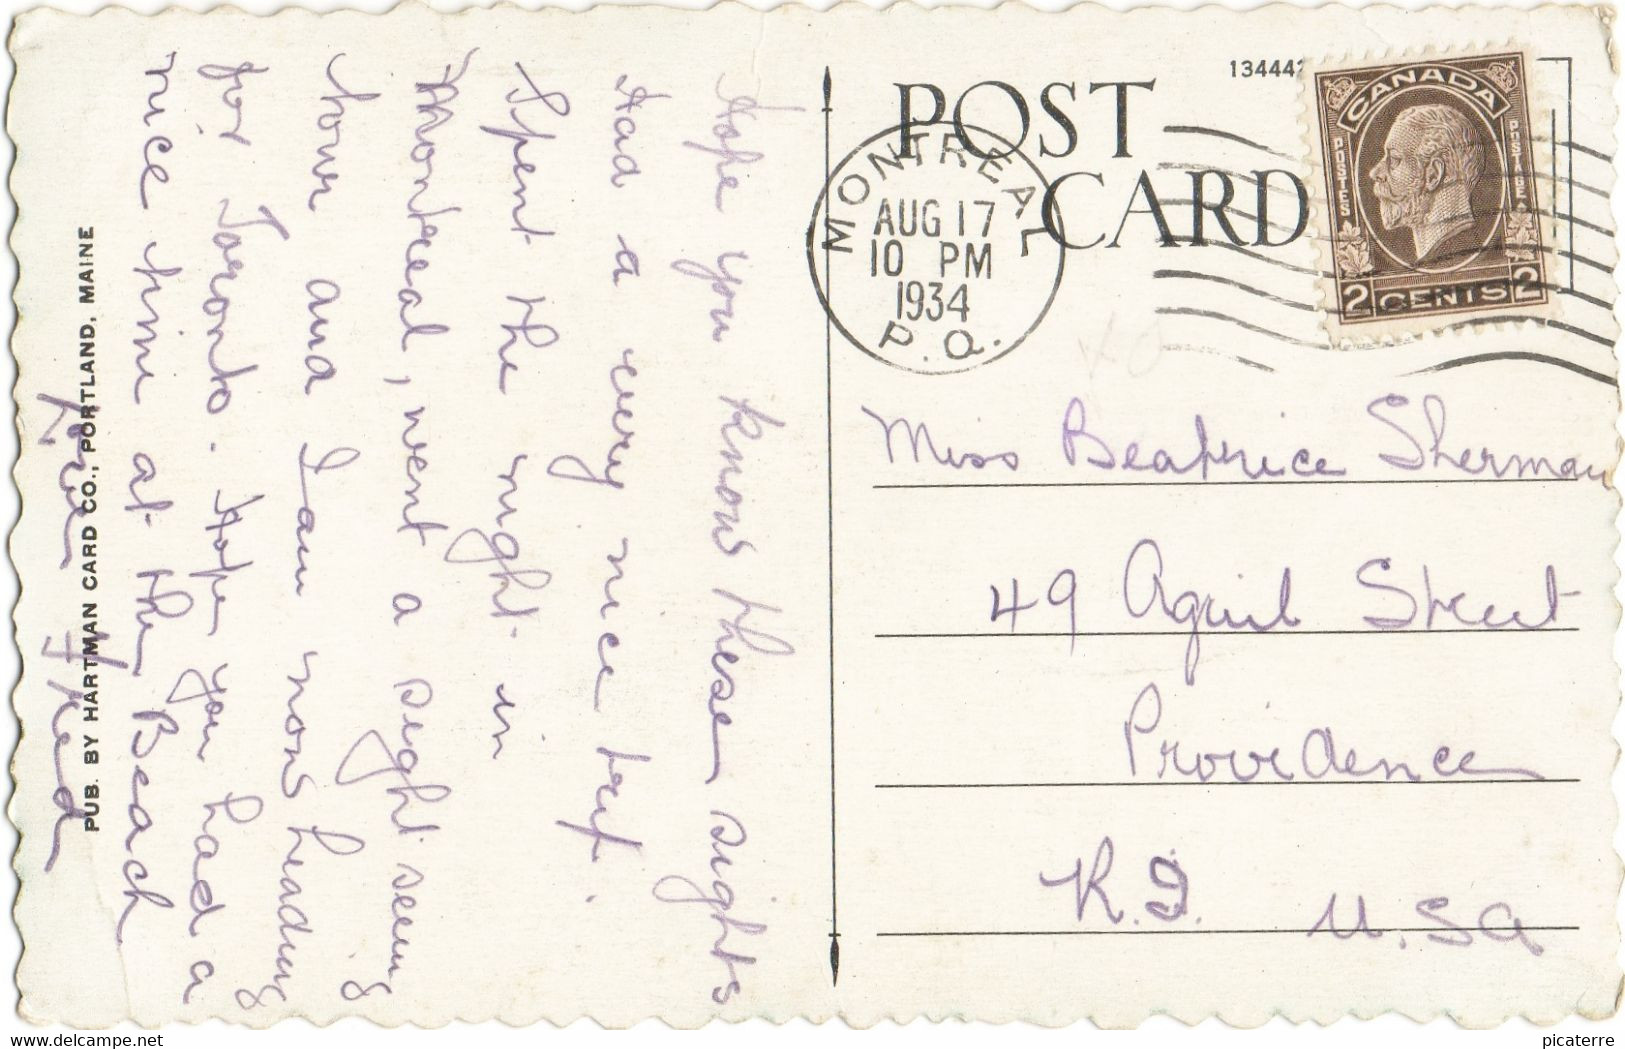 Hope you know these sights
Had a very nice trip.
Spent the night in
Montreal, went a sight seeing
tour and I am now heading
for Toronto. Hope you had a
nice time at the Beach
Fred
PUB. BY HARTMAN CARD CO., PORTLAND, MAINE
POST
CARD
13444
MONTREAL
AUG 17
10 PM
1934
P.Q.
CANADA
POSTES
POSTAGE
2 CENTS 2
Miss Beatrice Sherman
49 April Street
Providence
R.I. U.SA
delcampe.net
picaterre